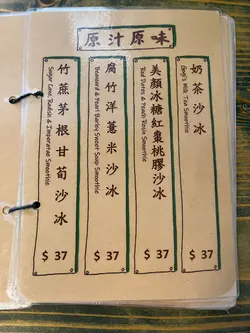 原汁原味
奶茶沙冰
Gong's Milk Tea Smoothie
$ 37
美顏冰糖紅棗桃膠沙冰
Red Dates & Peach Resin Smoothie
$ 37
腐竹洋薏米沙冰
Beancurd & Pearl Barley Sweet Soup Smoothie
$ 37
竹蔗茅根甘筍沙冰
Sugar Cane, Radish & Imperatae Smoothie
$ 37